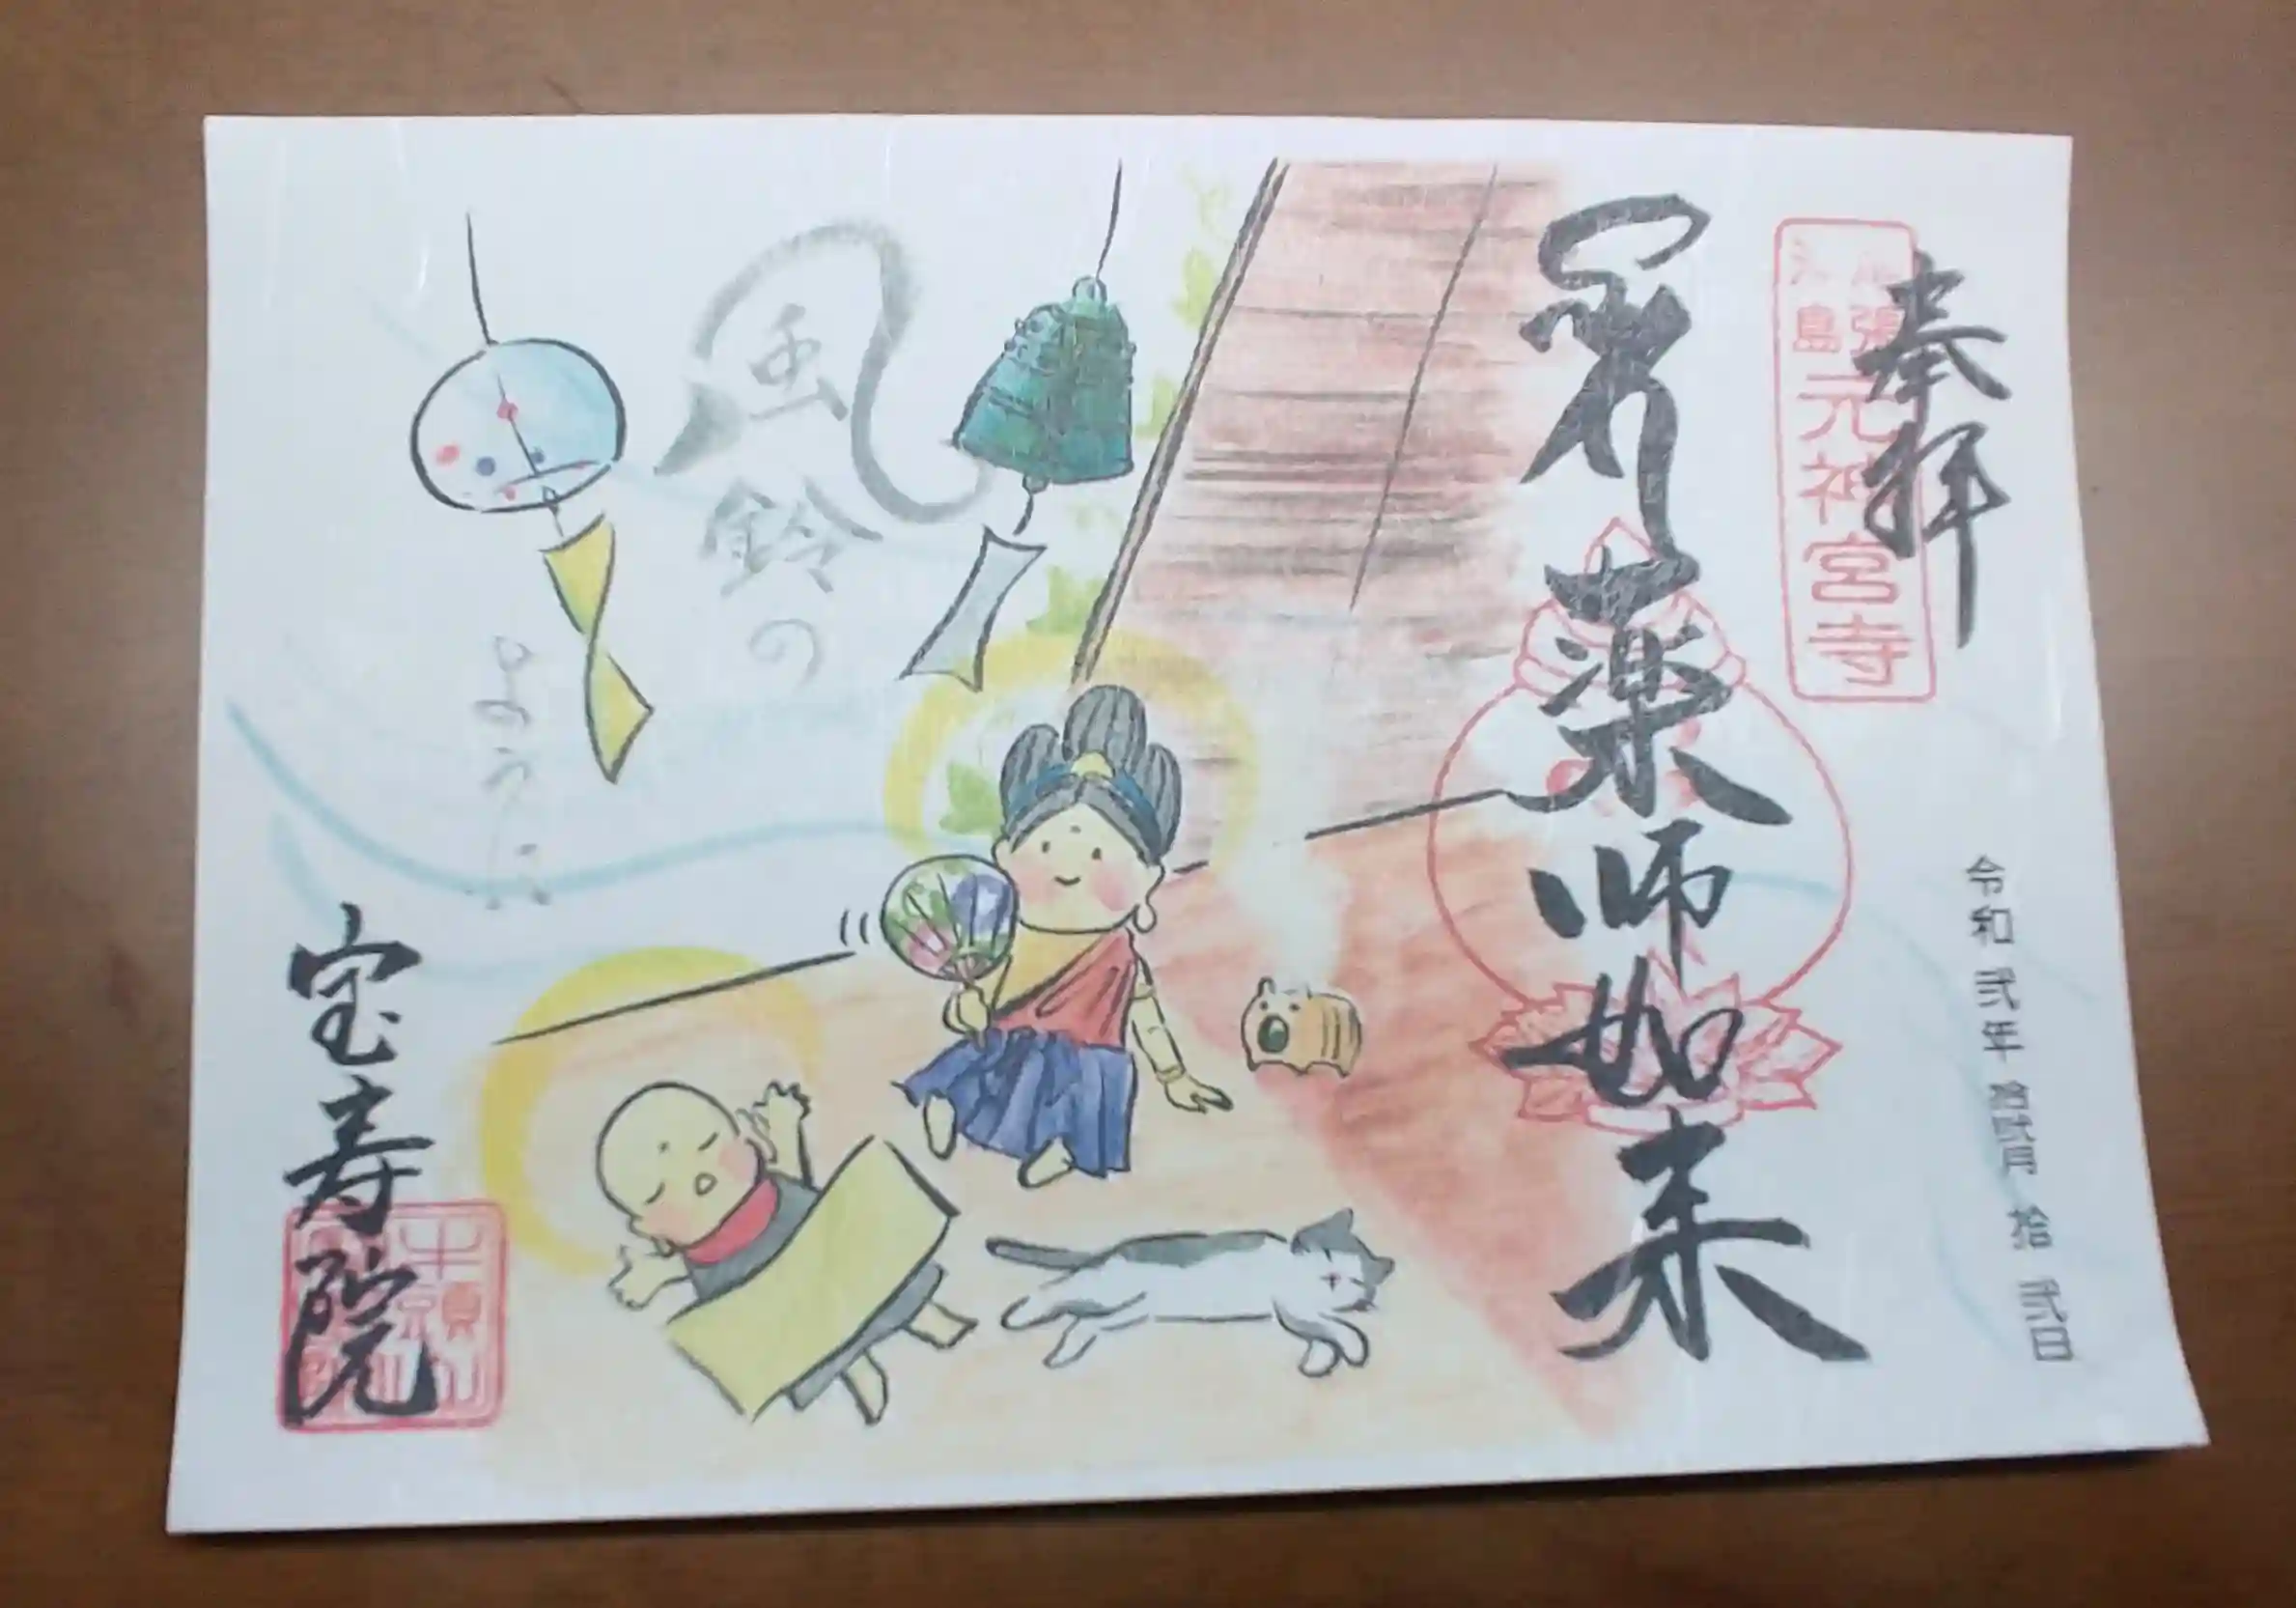 奉拝
尾張
津島
元神宮寺
令和弐年拾弐月拾弐日
薬師如来
風鈴の
ように
宝寿院